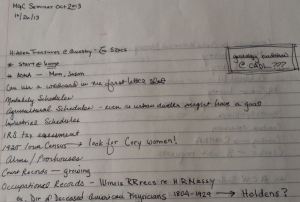 MGC Seminar Oct 2013
10/26/13
Hidden Treasures @ Ancestry
* Start @ home
* - Mom, Susan
Can use a wildcard in the first letter
Mortality Schedules
Agricultural Schedules - even is urban dweller might have a goat
Industries Schedules
IRS tax assessment
1925 Iowa Census → look for Cory women!
Alms / Poorhouses
Court Records - growing
Occupational Records - Illinois RR recs
ex. Dir of Deceased American Physicians 1804-1929 → Holdens?
@ CADL ???